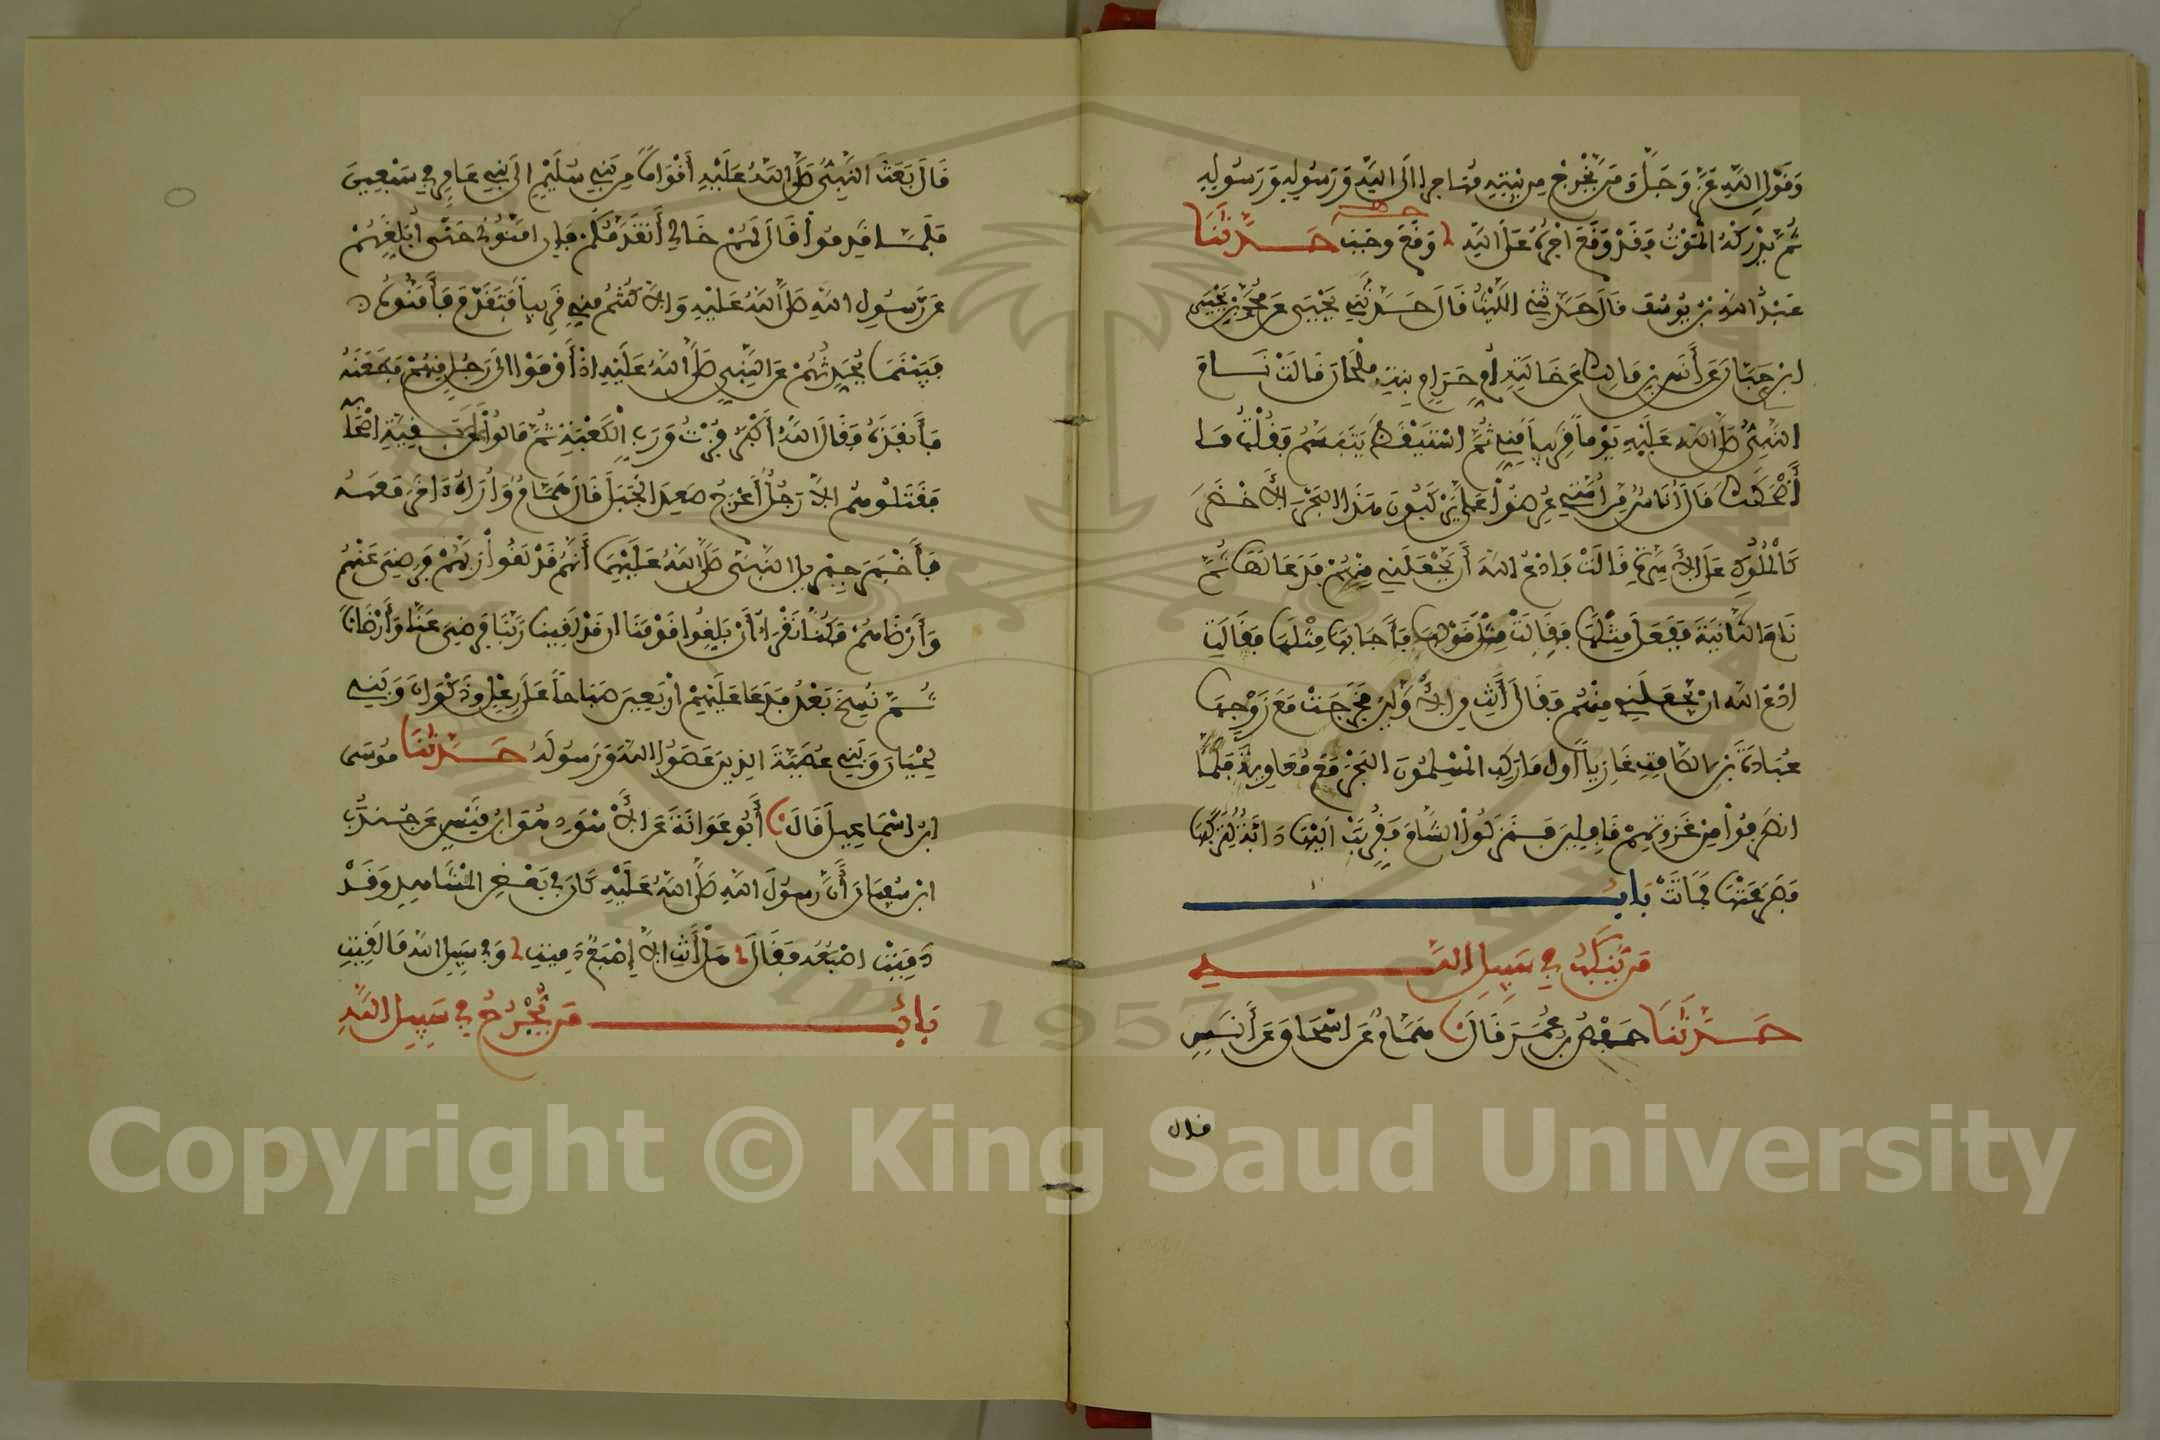 وَقَوْلِ اللَّهِ عَزَّ وَجَلَّ وَمَن يَّخْرُجْ مِن بَيْتِهِ مُهَاجِرًا إِلَى اللَّهِ وَرَسُولِهِ وَرَسُولِهِ
ثُمَّ يُدْرِكْهُ الْمَوْتُ فَقَدْ وَقَعَ أَجْرُهُ عَلَى اللَّهِ وَقَعَ وَجَبَ حَدَّثَنَا
عَبْدُ اللَّهِ بْنُ يُوسُفَ قَالَ حَدَّثَنِي اللَّيْثُ قَالَ حَدَّثَنِي يَحْيَى عَن مُحَمَّدِ بْنِ يَحْيَى
ابْنِ حَبَّانَ عَنْ أَنَسِ بْنِ مَالِكٍ عَن خَالَتِهِ أُمِّ حَرَامٍ بِنْتِ مِلْحَانَ قَالَتْ نَامَ
النَّبِيُّ صَلَّى اللَّهُ عَلَيْهِ يَوْمًا قَرِيبًا مِنِّي ثُمَّ اسْتَيْقَظَ يَتَبَسَّمُ فَقُلْتُ مَا
أَضْحَكَكَ قَالَ أُنَاسٌ مِنْ أُمَّتِي عُرِضُوا عَلَيَّ يَرْكَبُونَ هَذَا الْبَحْرَ الْأَخْضَرَ
كَالْمُلُوكِ عَلَى الْأَسِرَّةِ قَالَتْ فَادْعُ اللَّهَ أَنْ يَجْعَلَنِي مِنْهُمْ فَدَعَا لَهَا ثُمَّ
نَامَ الثَّانِيَةَ فَفَعَلَ مِثْلَهَا فَقَالَتْ مِثْلَ قَوْلِهَا فَأَجَابَهَا مِثْلَهَا فَقَالَتِ
ادْعُ اللَّهَ أَنْ يَجْعَلَنِي مِنْهُمْ فَقَالَ أَنْتِ مِنَ الْأَوَّلِينَ فَخَرَجَتْ مَعَ زَوْجِهَا
عُبَادَةَ بْنِ الصَّامِتِ غَازِيًا أَوَّلَ مَا رَكِبَ الْمُسْلِمُونَ الْبَحْرَ مَعَ مُعَاوِيَةَ فَلَمَّا
انْصَرَفُوا مِنْ غَزْوَتِهِمْ قَافِلِينَ فَنَزَلُوا الشَّامَ فَقُرِّبَتْ إِلَيْهَا دَابَّةٌ لِتَرْكَبَهَا
فَصَرَعَتْهَا فَمَاتَتْ بَابُ
مَن يُنْكَبُ فِي سَبِيلِ اللَّهِ
حَدَّثَنَا حَفْصُ بْنُ عُمَرَ قَالَ نَا هَمَّامٌ عَنْ إِسْحَاقَ عَنْ أَنَسٍ
قال
قَالَ بَعَثَ النَّبِيُّ صَلَّى اللَّهُ عَلَيْهِ أَقْوَامًا مِن بَنِي سُلَيْمٍ إِلَى بَنِي عَامِرٍ فِي سَبْعِينَ
فَلَمَّا قَدِمُوا قَالَ لَهُمْ خَالِي أَتَقَدَّمُكُمْ فَإِنْ أَمَّنُونِي حَتَّى أُبَلِّغَهُمْ
عَن رَّسُولِ اللَّهِ صَلَّى اللَّهُ عَلَيْهِ وَإِلَّا كُنْتُمْ مِنِّي قَرِيبًا فَتَقَدَّمَ فَأَمَّنُوهُ
فَبَيْنَمَا يُحَدِّثُهُمْ عَنِ النَّبِيِّ صَلَّى اللَّهُ عَلَيْهِ إِذْ أَوْمَوْا إِلَى رَجُلٍ مِنْهُمْ فَطَعَنَهُ
فَأَنْفَذَهُ فَقَالَ اللَّهُ أَكْبَرُ فُزْتُ وَرَبِّ الْكَعْبَةِ ثُمَّ مَالُوا عَلَى بَقِيَّةِ أَصْحَابِهِ
فَقَتَلُوهُمْ إِلَّا رَجُلٌ أَعْرَجُ صَعِدَ الْجَبَلَ قَالَ هَمَّامٌ وَأُرَاهُ آخَرَ مَعَهُ
فَأَخْبَرَ جِبْرِيلُ النَّبِيَّ صَلَّى اللَّهُ عَلَيْهِمَا أَنَّهُمْ قَدْ لَقُوا رَبَّهُمْ فَرَضِيَ عَنْهُمْ
وَأَرْضَاهُمْ فَكُنَّا نَقْرَأُ أَنْ بَلِّغُوا قَوْمَنَا أَنْ قَدْ لَقِينَا رَبَّنَا فَرَضِيَ عَنَّا وَأَرْضَانَا
ثُمَّ نُسِخَ بَعْدُ فَدَعَا عَلَيْهِمْ أَرْبَعِينَ صَبَاحًا عَلَى رِعْلٍ وَذَكْوَانَ وَبَنِي
لِحْيَانَ وَبَنِي عُصَيَّةَ الَّذِينَ عَصَوُا اللَّهَ وَرَسُولَهُ حَدَّثَنَا مُوسَى
ابْنُ إِسْمَاعِيلَ قَالَ نَا أَبُو عَوَانَةَ عَنِ الْأَسْوَدِ هُوَ ابْنُ قَيْسٍ عَن جُنْدُبِ
ابْنِ سُفْيَانَ أَنَّ رَسُولَ اللَّهِ صَلَّى اللَّهُ عَلَيْهِ كَانَ فِي بَعْضِ الْمَشَاهِدِ وَقَدْ
دَمِيَتْ إِصْبَعُهُ فَقَالَ هَلْ أَنْتِ إِلَّا إِصْبَعٌ دَمِيتِ وَفِي سَبِيلِ اللَّهِ مَا لَقِيتِ
بَابُ مَن يُجْرَحُ فِي سَبِيلِ اللَّهِ
Copyright © King Saud University
1957